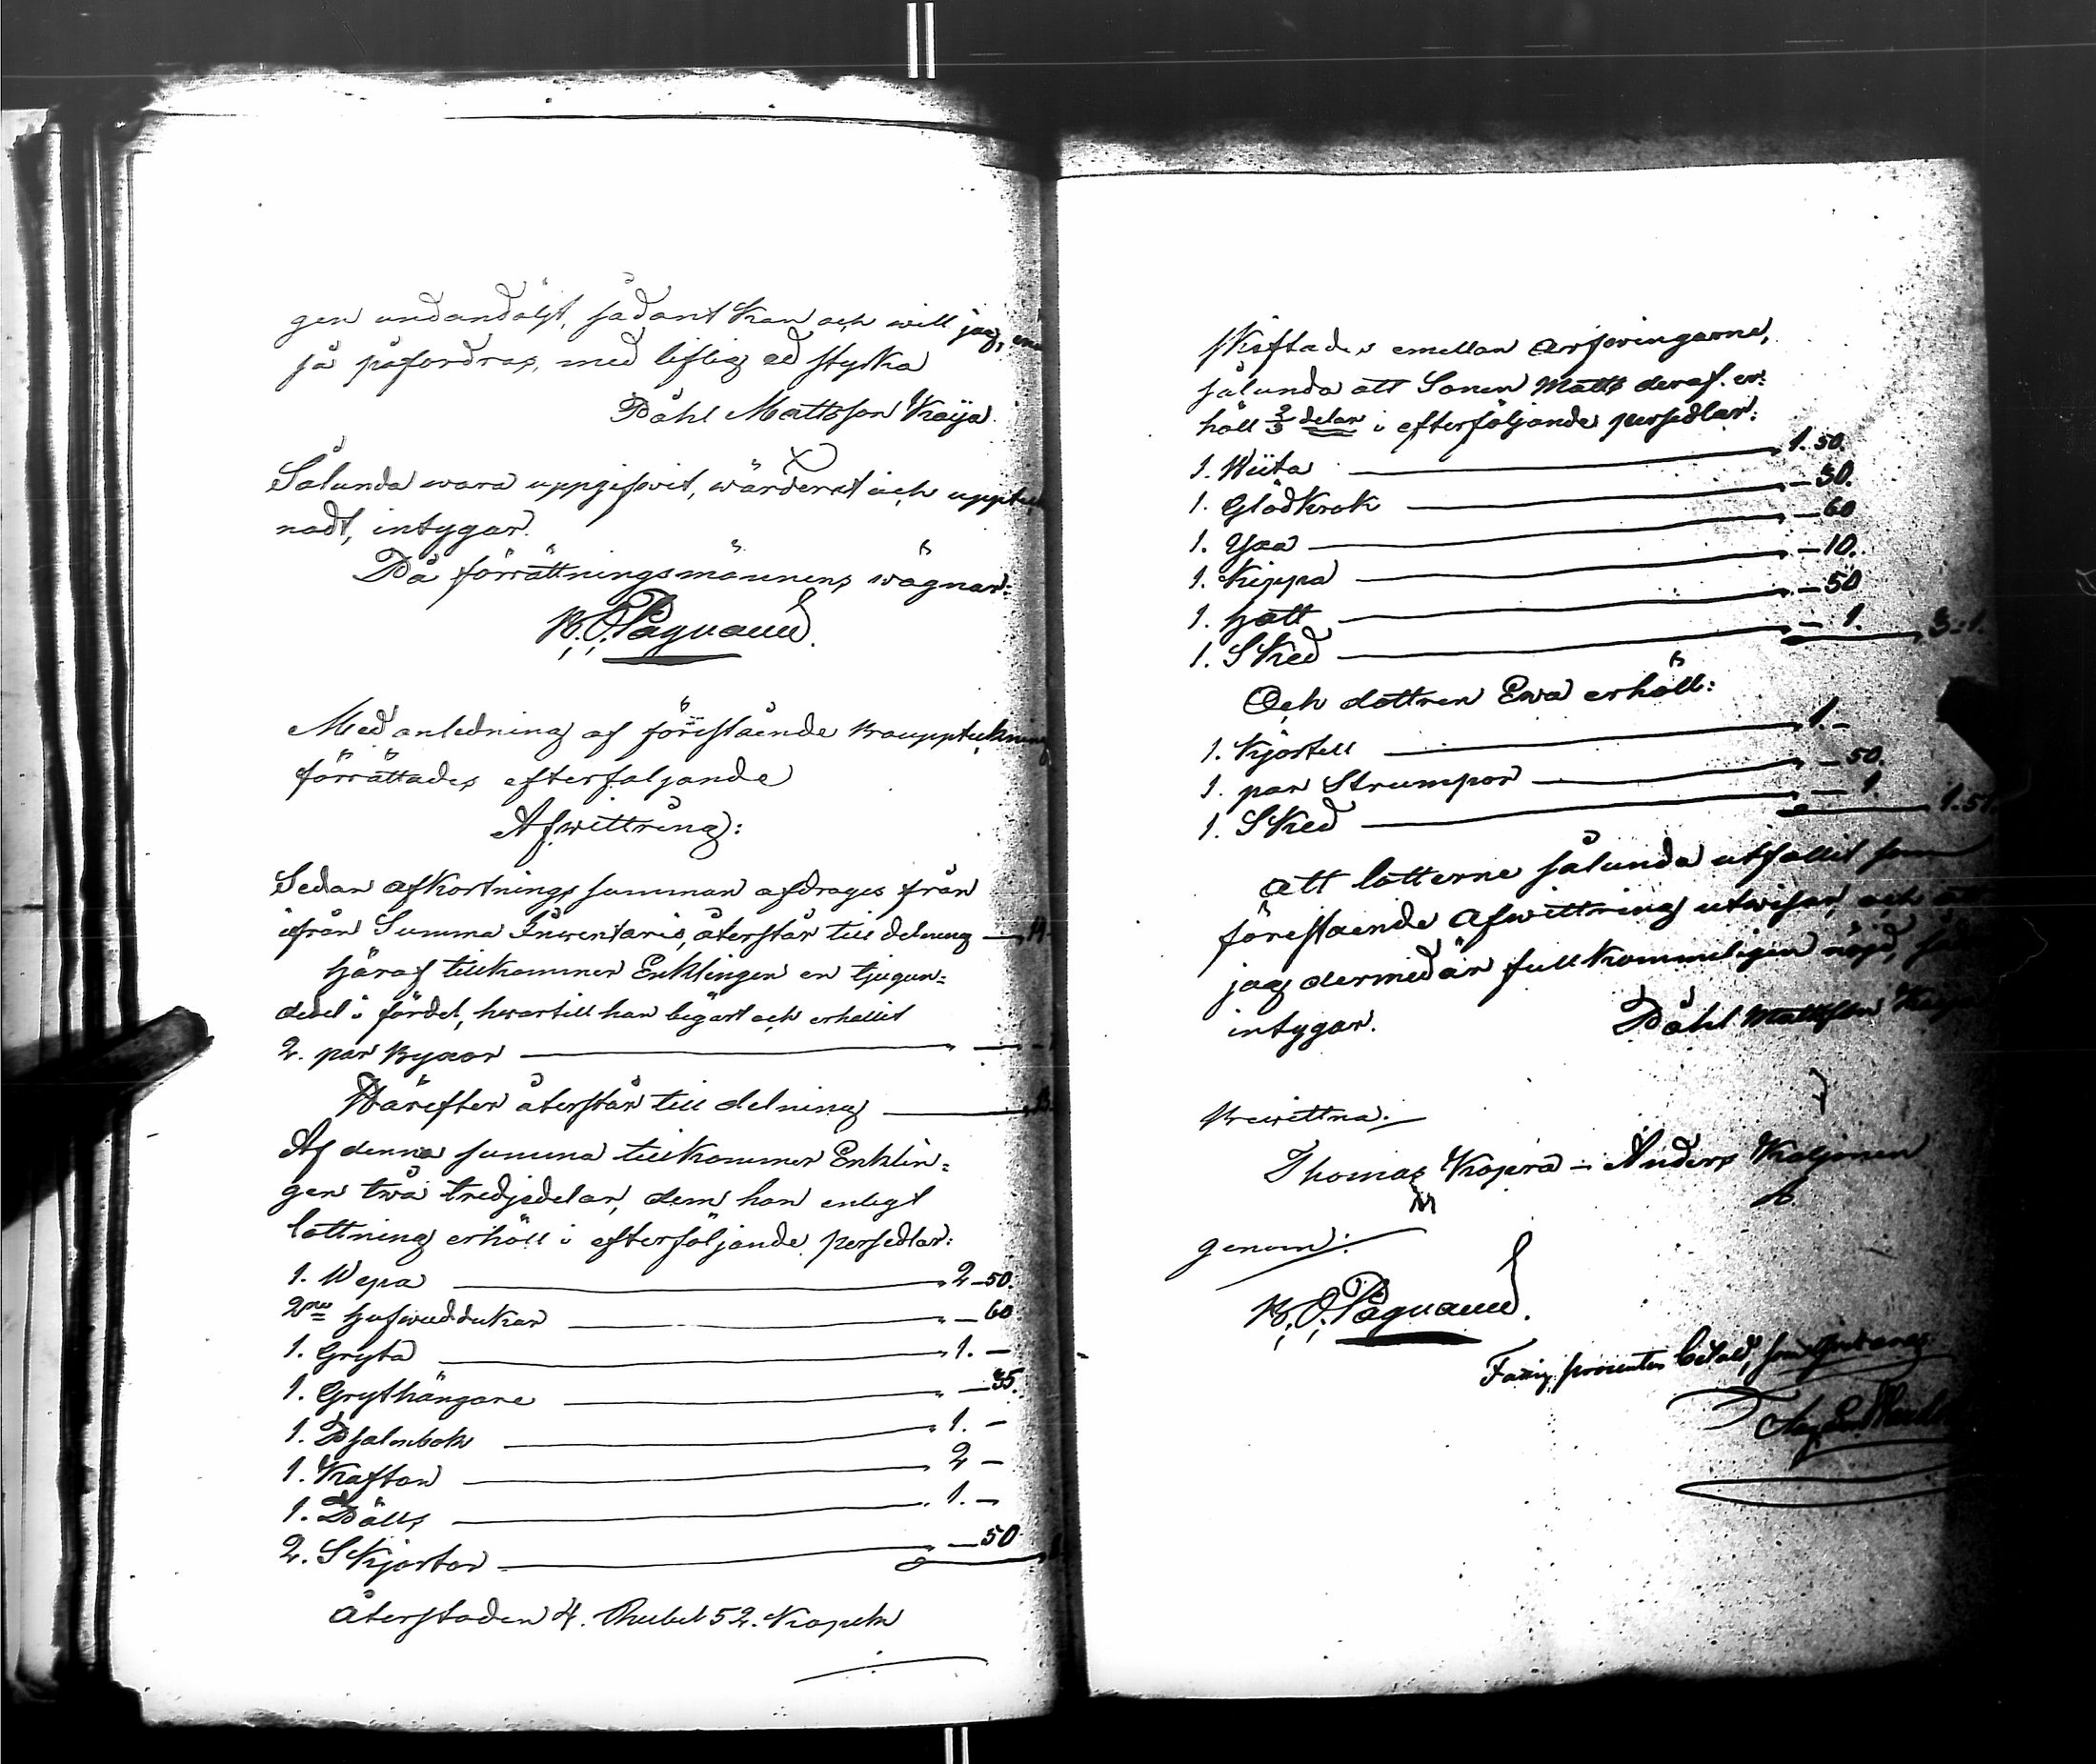 gen undandöljt, sådant kan och will jag,
så påfordras, med liflig ed styrka
Påhl Mattsson Kaija.
Sålunda wara uppgifwit, wärderat och upptek
nadt, intygar.
På förrättningsmännens wägnar:
K. O. Pagnaend.
Med anledning af förestående Bouppteckning
förrättades efterföljande
Afwittring:
Sedan afkortnings summan afdrages från
ifrån Summa Inwentarie, återstår till delning —
Häraf tillkommer Enklingen en tjugun=
dedel i fördel, hwartill han begärt och erhållit
2. par Byxor —
Härefter återstår till delning —
Af denna summa tillkommer Enklin=
gen twå tredjedelar, dem han enligt
lottning erhöll i efterföljande persedlar:
1. Wepa — 2-50.
2ne Hufwuddukar — „ -60.
1. Gryta — 1. -
1. Grythängare — „ -35.
1. Psalmbok — 1. -
1. Kaftan — 2 -
1. Pälls — 1. -
2. Skjortor — „ -50
Återstoden 4. Rubel 52. Kopek
skiftades emellan arfwingarne,
sålunda att Sonen Matts deraf er=
höll 2/3 delar i efterföljande persedlar:
1. Wiita — 1.50.
1. Glödkrok — „ -30.
1. Yxa — „ -60
1. Kippa — „ -10.
1. Hatt — „ -50
1. Sked — „ - 1. 3-1.
Och dottren Ewa erhöll:
1. Kjortell — 1.-
1. par Strumpor — „ -50.
1. Sked — „ - 1. 1.51.
Att lotterne sålunda utfallit som
förestående Afwittring utwisar, och att
jag dermed är fullkommeligen nöjd,
intygar. Påhl Mattsson
Bewittna:
Thomas Kopra - Anders Kaljonen
genom:
K. O. Pagnaend.
Fattig procenten betald,